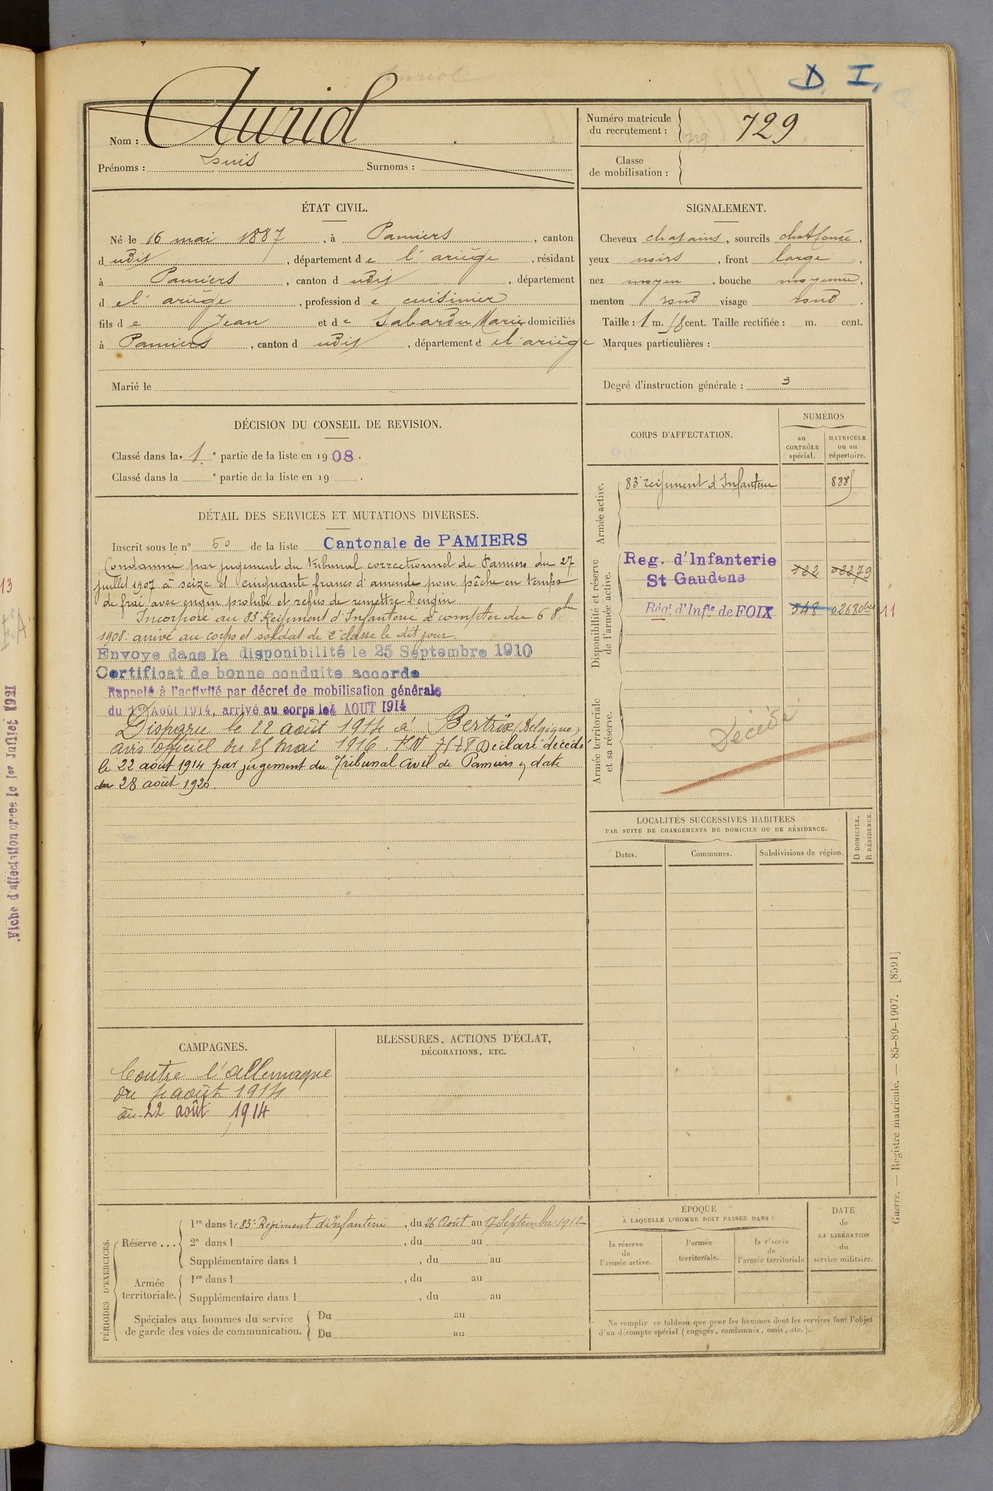 D. I.
Nom : Auriol
Prénoms : Louis Surnoms :
Numéro matricule du recrutement : 729
Classe de mobilisation :
ÉTAT CIVIL.
Né le 16 mai 1887, à Pamiers, canton
d udit, département d e l'ariège, résidant
à Pamiers, canton d udit, département
d e l'ariège, profession d e cuisinier
fils d e Jean et d e Sabardu Marie domiciliés
à Pamiers, canton d udit, département d e l'ariège
Marié le
SIGNALEMENT.
Cheveux chatains, sourcils chat foncé,
yeux noirs, front large,
nez moyen, bouche moyenne,
menton rond visage rond.
Taille : 1 m. cent. Taille rectifiée : m. cent.
Marques particulières :
Degré d'instruction générale : 3
DÉCISION DU CONSEIL DE REVISION.
Classé dans la 1e partie de la liste en 1908.
Classé dans la e partie de la liste en 19 .
CORPS D'AFFECTATION.
NUMÉROS
au CONTRÔLE spécial.
MATRICULE ou au répertoire.
Armée active.
83e régiment d'Infanterie
Disponibilité et réserve de l'armée active.
Reg. d'Infanterie
St Gaudens
Rég. d'Infie de FOIX
11
Armée territoriale et sa réserve.
Décédé
DÉTAIL DES SERVICES ET MUTATIONS DIVERSES.
Inscrit sous le n° 60 de la liste Cantonale de PAMIERS
Condamné par jugement du tribunal correctionnel de Pamiers du 27
juillet 1907 à seize et cinquante francs d'amende pour pêche en temps
de frai avec engin prohibé et refus de remettre l'engin
Incorporé au 83e Régiment d'Infanterie à compter du 6 8bre
1908: arrivé au corps et soldat de 2e classe le dit jour.
Envoyé dans la disponibilité le 25 Septembre 1910
Certificat de bonne conduite accordé
Rappelé à l'activité par décret de mobilisation générale
du 1er Août 1914, arrivé au corps le 4 AOUT 1914
Disparu le 22 août 1914 à Bertrix (Belgique)
avis officiel du 25 mai 1916. Déclaré décédé
le 22 août 1914 par jugement du Tribunal civil de Pamiers en date
du 28 août 1920.
LOCALITÉS SUCCESSIVES HABITÉES
PAR SUITE DE CHANGEMENTS DE DOMICILE OU DE RÉSIDENCE.
Dates. Communes. Subdivisions de région. D DOMICILE. R RÉSIDENCE.
CAMPAGNES.
Contre l'allemagne
du 4 août 1914
au 22 août 1914
BLESSURES, ACTIONS D'ÉCLAT,
DÉCORATIONS, ETC.
PÉRIODES D'EXERCICES.
Réserve....
1re dans le 83e Régiment d'infanterie, du 26 Août au 17 Septembre 1912
2e dans l , du au
Supplémentaire dans l , du au
Armée territoriale.
1re dans l , du au
Supplémentaire dans l , du au
Spéciales aux hommes du service de garde des voies de communication.
Du au
Du au
ÉPOQUE
À LAQUELLE L'HOMME DOIT PASSER DANS :
la réserve de l'armée active.
l'armée territoriale.
la réserve de l'armée territoriale
DATE de LA LIBÉRATION du service militaire.
Ne remplir ce tableau que pour les hommes dont les services font l'objet
d'un décompte spécial (engagés, condamnés, omis, etc.).
Guerre. — Registre matricule. — 85-89-1907. [8591]
Fiche d'affectation créée le 1er Juillet 1921
13